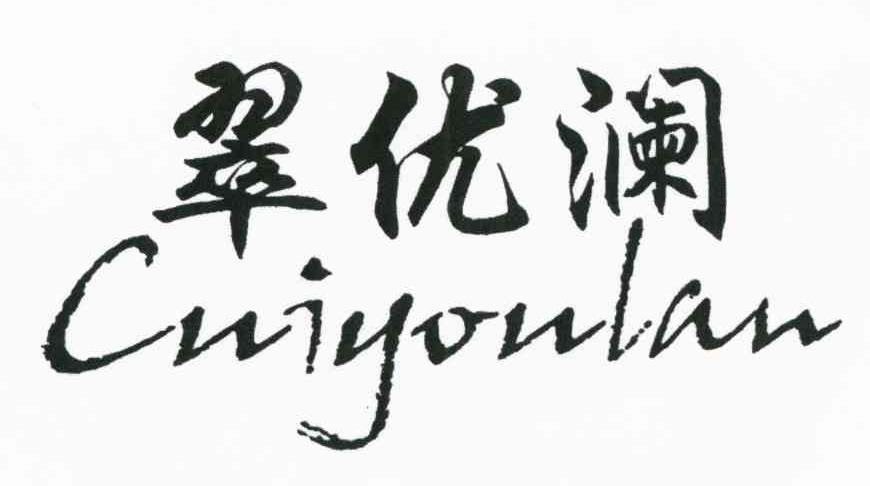 翠优澜
Cuiyoulan